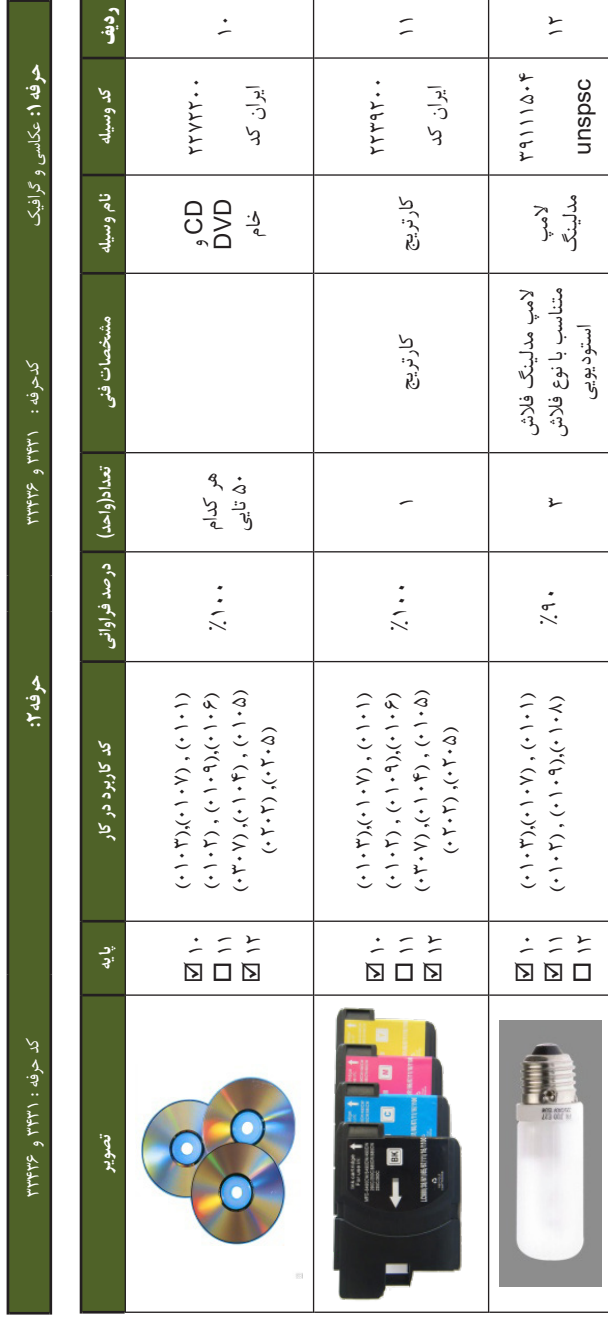 حرفه ۱: عکاسی و گرافیک
کدحرفه : ۳۴۳۱ و ۳۳۴۳۶
حرفه ۲:
کد حرفه : ۳۴۳۱ و ۳۳۴۳۶
ردیف
کد وسیله
نام وسیله
مشخصات فنی
تعداد(واحد)
درصد فراوانی
کد کاربرد در کار
پایه
تصویر
۱۰
۲۲۷۲۲۰۰
ایران کد
CD و
DVD
خام
هر کدام
۵۰ تایی
٪۱۰۰
(۰۱۰۳),(۰۱۰۷) , (۰۱۰۱)
(۰۱۰۲) , (۰۱۰۹),(۰۱۰۶)
(۰۳۰۷),(۰۱۰۴) , (۰۱۰۵)
(۰۲۰۲) ,(۰۲۰۵)
☑ ۱۰
☐ ۱۱
☑ ۱۲
۱۱
۲۲۳۹۲۰۰
ایران کد
کارتریج
کارتریج
۱
٪۱۰۰
(۰۱۰۳),(۰۱۰۷) , (۰۱۰۱)
(۰۱۰۲) , (۰۱۰۹),(۰۱۰۶)
(۰۳۰۷),(۰۱۰۴) , (۰۱۰۵)
(۰۲۰۲) ,(۰۲۰۵)
☑ ۱۰
☐ ۱۱
☑ ۱۲
BK
C
M
Y
۱۲
۳۹۱۱۱۵۰۴
unspsc
لامپ
مدلینگ
لامپ مدلینگ فلاش
متناسب با نوع فلاش
استودیویی
۳
٪۹۰
(۰۱۰۳),(۰۱۰۷) , (۰۱۰۱)
(۰۱۰۲) , (۰۱۰۹),(۰۱۰۸)
☑ ۱۰
☑ ۱۱
☐ ۱۲